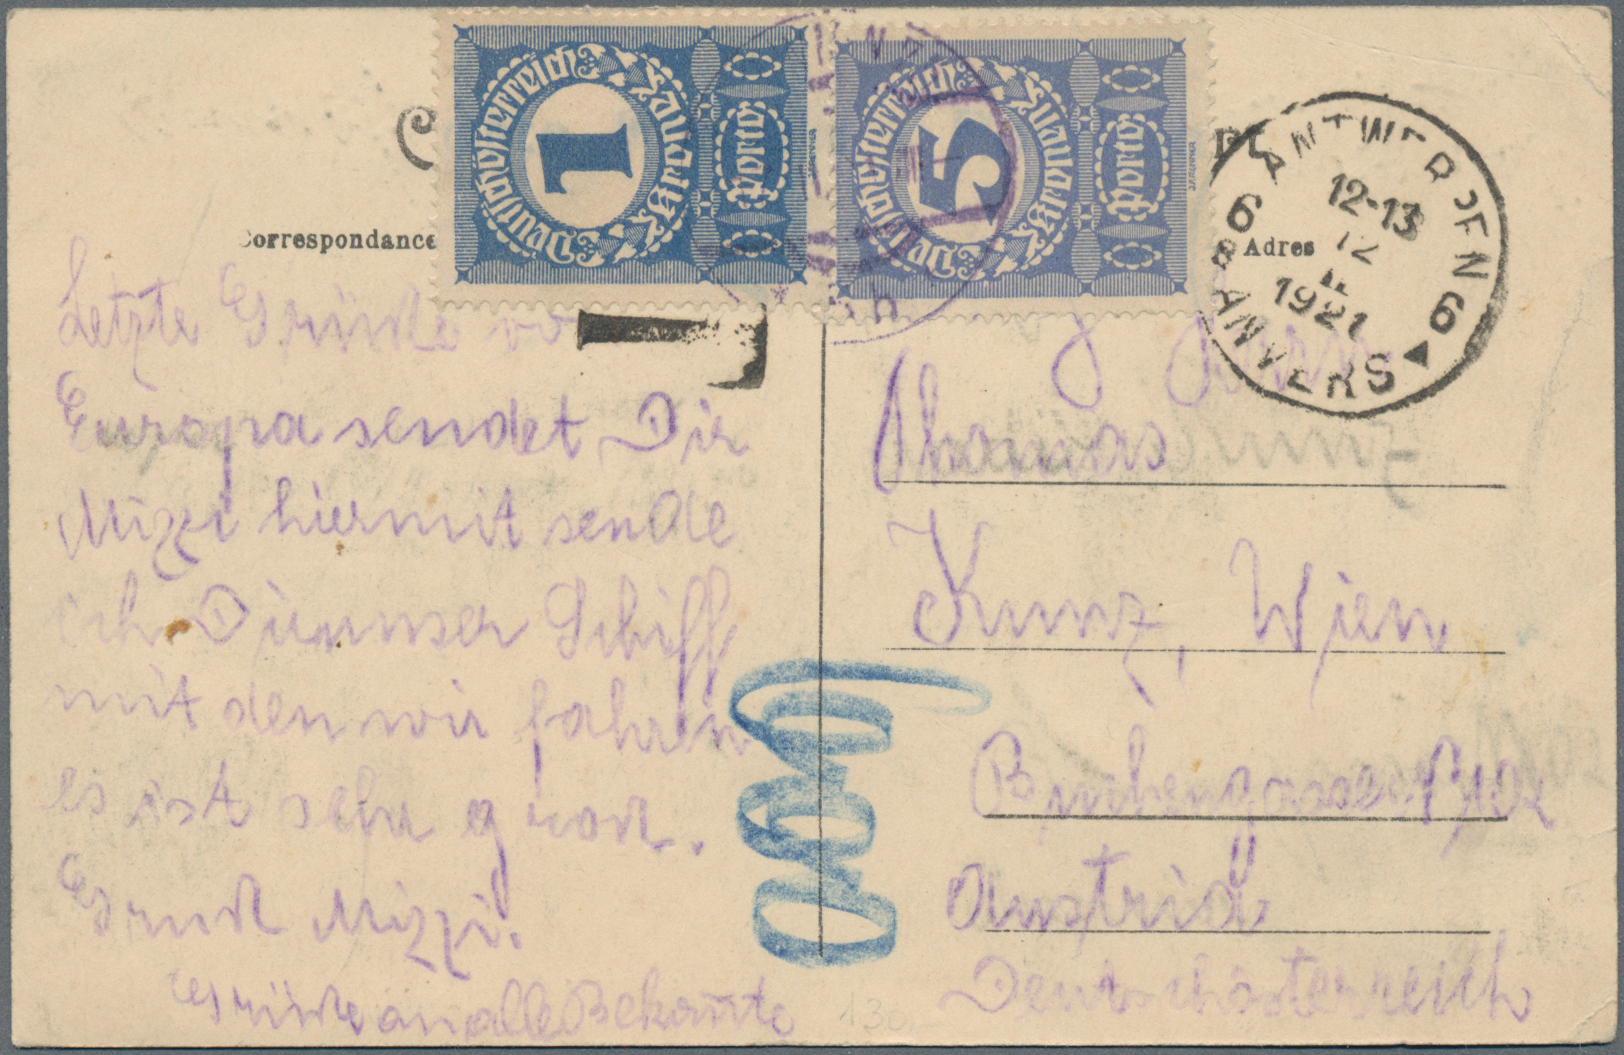 Deutschösterreich
1
Kronen
Porto
Deutschösterreich
5
Kronen
Porto
Correspondance
Adres
ANTWERPEN
6
12-13
12
1921
6
ANVERS
T
Letzte Grüße vo
Europa sendet Dir
Mizzi hiermit sende
ich Dir unser Schiff
mit den wir fahren
es ist sehr groß.
Gruß Mizzi.
Grüße an alle Bekannte
600
130
Thomas
Kunz, Wien
Austria
Deutschösterreich